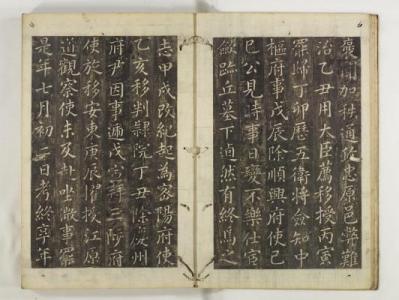 褒聞加秩通政忠原邑弊難
治乙丑用大臣薦移授丙寅
罷歸丁卯歷五衛將僉知中
樞府事戊辰除順興府使己
巳公見時事日變不樂仕宦
斂跡丘墓下逌然有終焉之
志甲戌改紀起為密陽府使
乙亥移判隸院丁丑除廣州
府尹因事遞戊寅拜三陟府
使旋移安東庚辰擢授江原
道觀察使未及赴坐微事罷
是年七月初二日考終享年